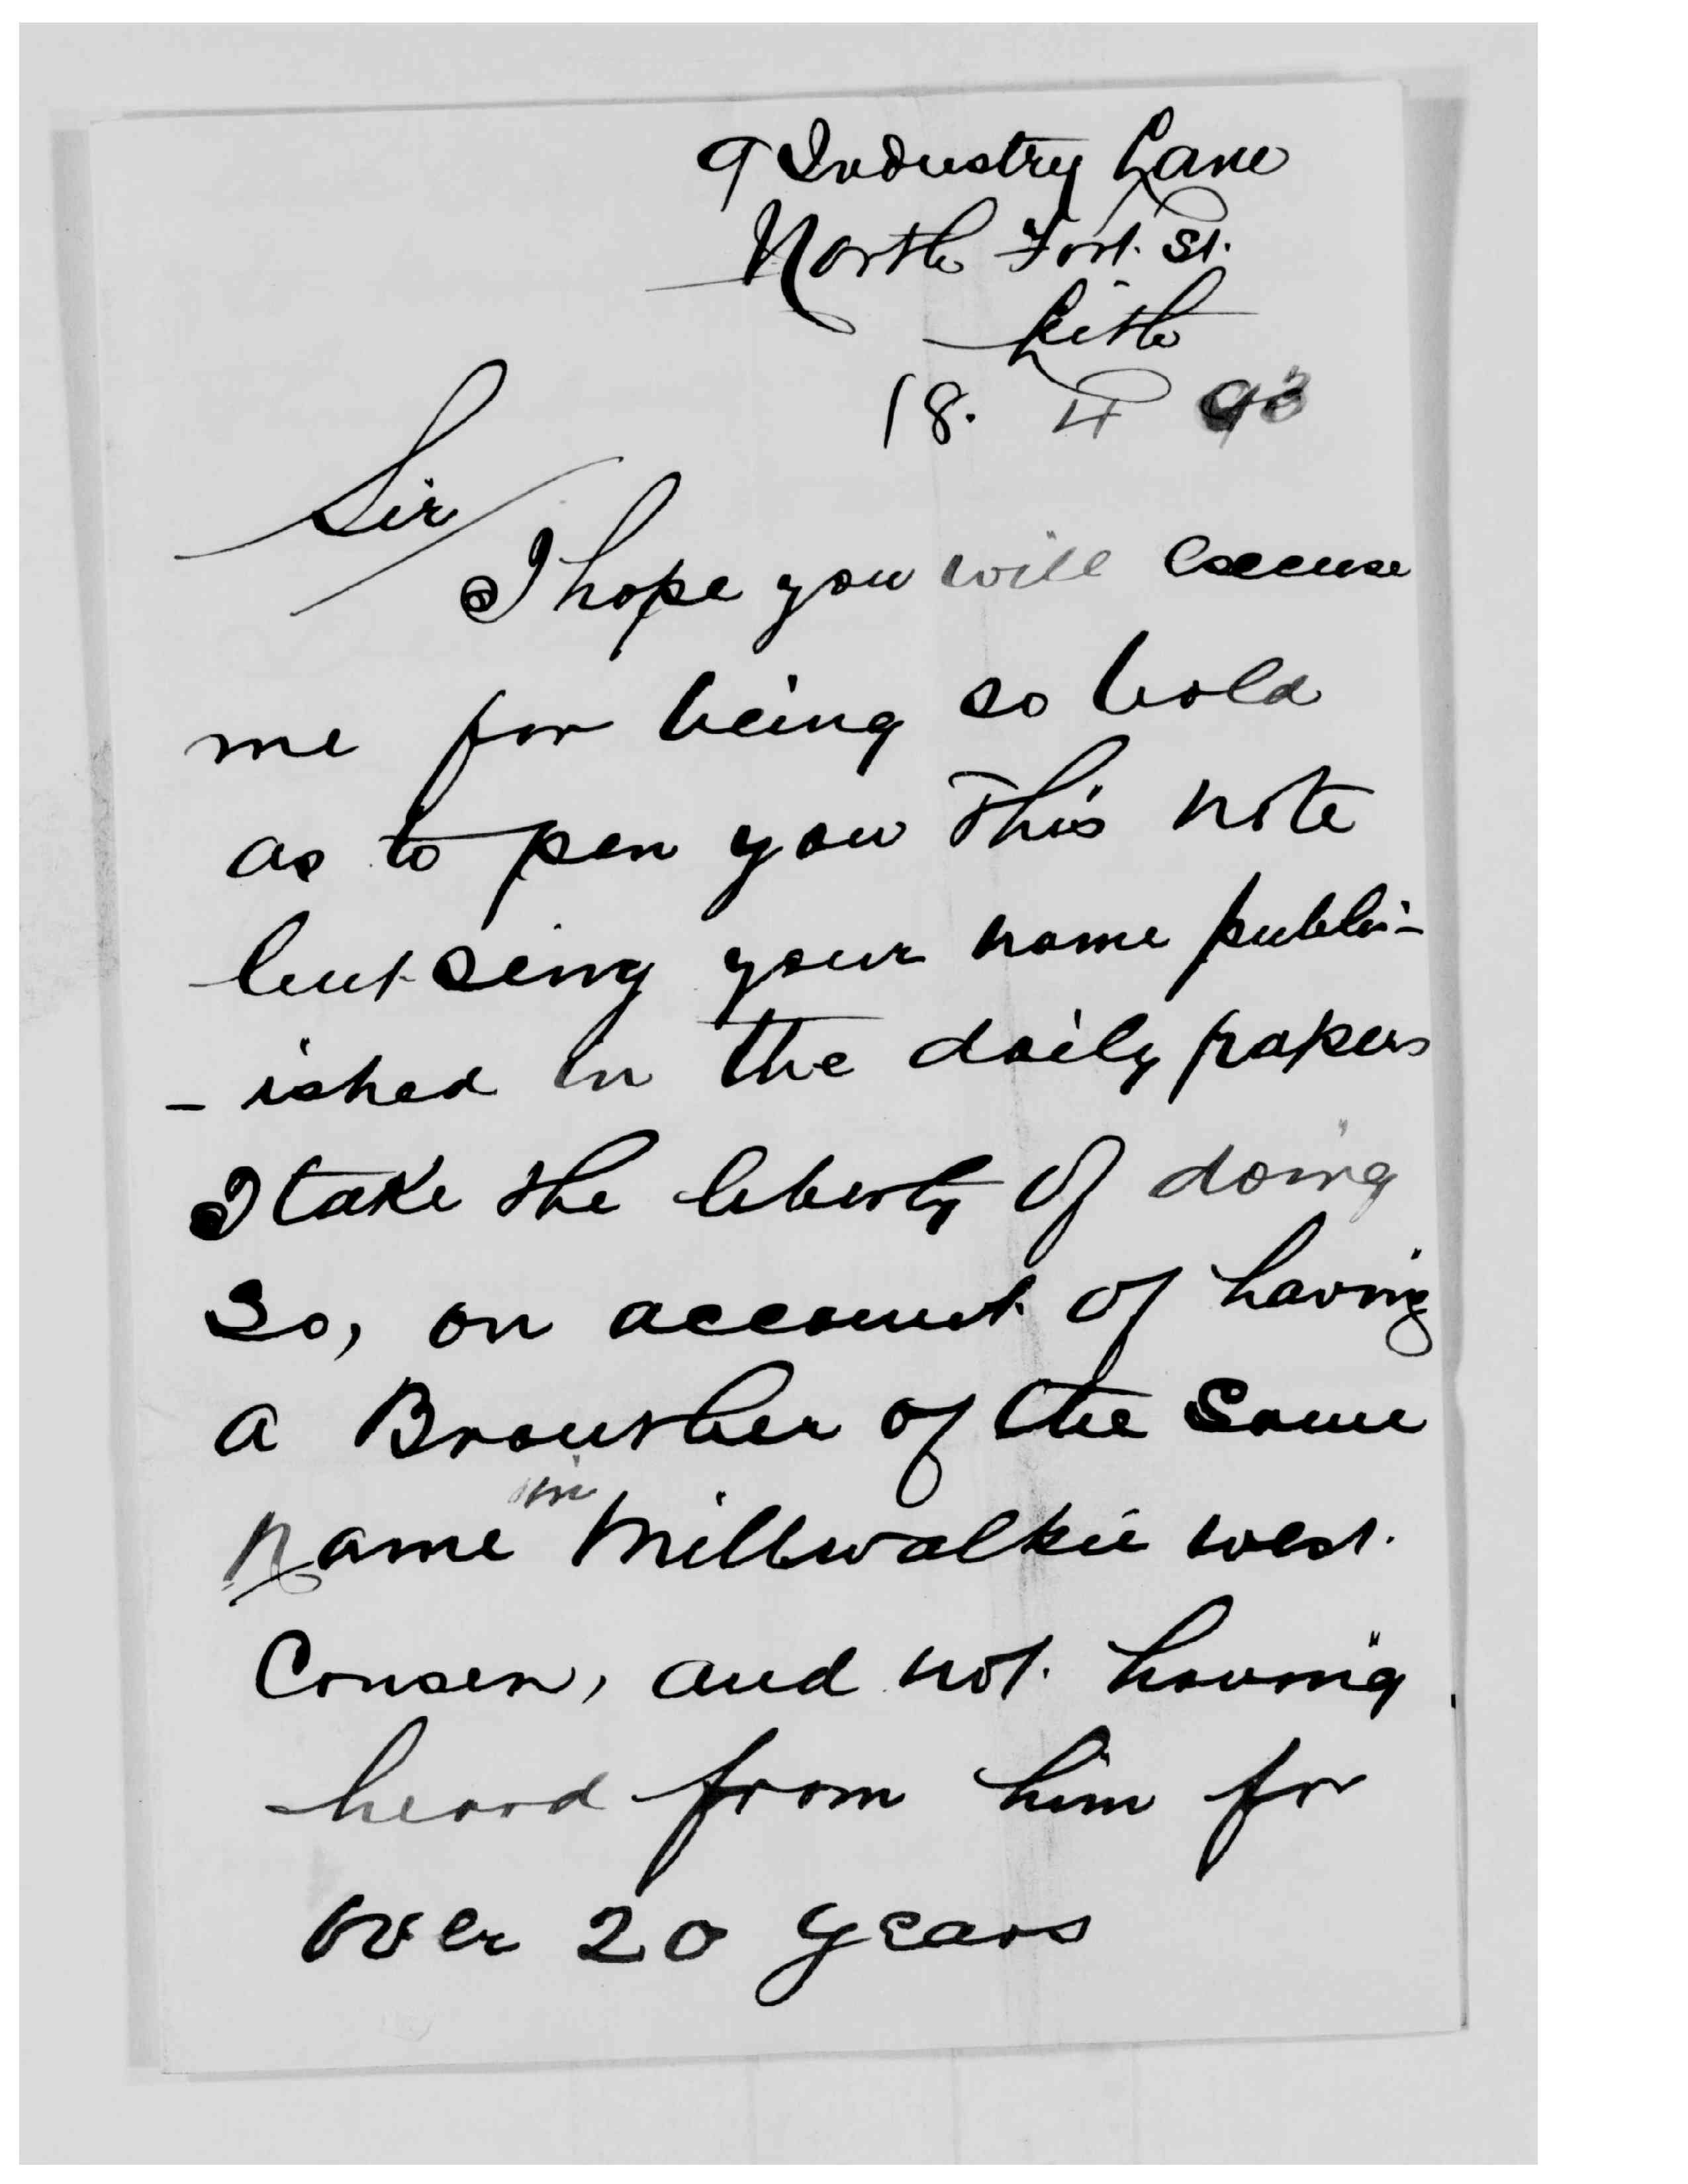 9 Industry Lane
North Fort. St.
Leith
18. 4 93
Sir
I hope you will excuse
me for being so bold
as to pen you this note
but seing your name publi-
- ished in the daily papers
I take the liberty of doing
So, on account of having
a Brouther of the Same
in
name Millwalkie west.
Consen, and not having
heard from him for
over 20 years